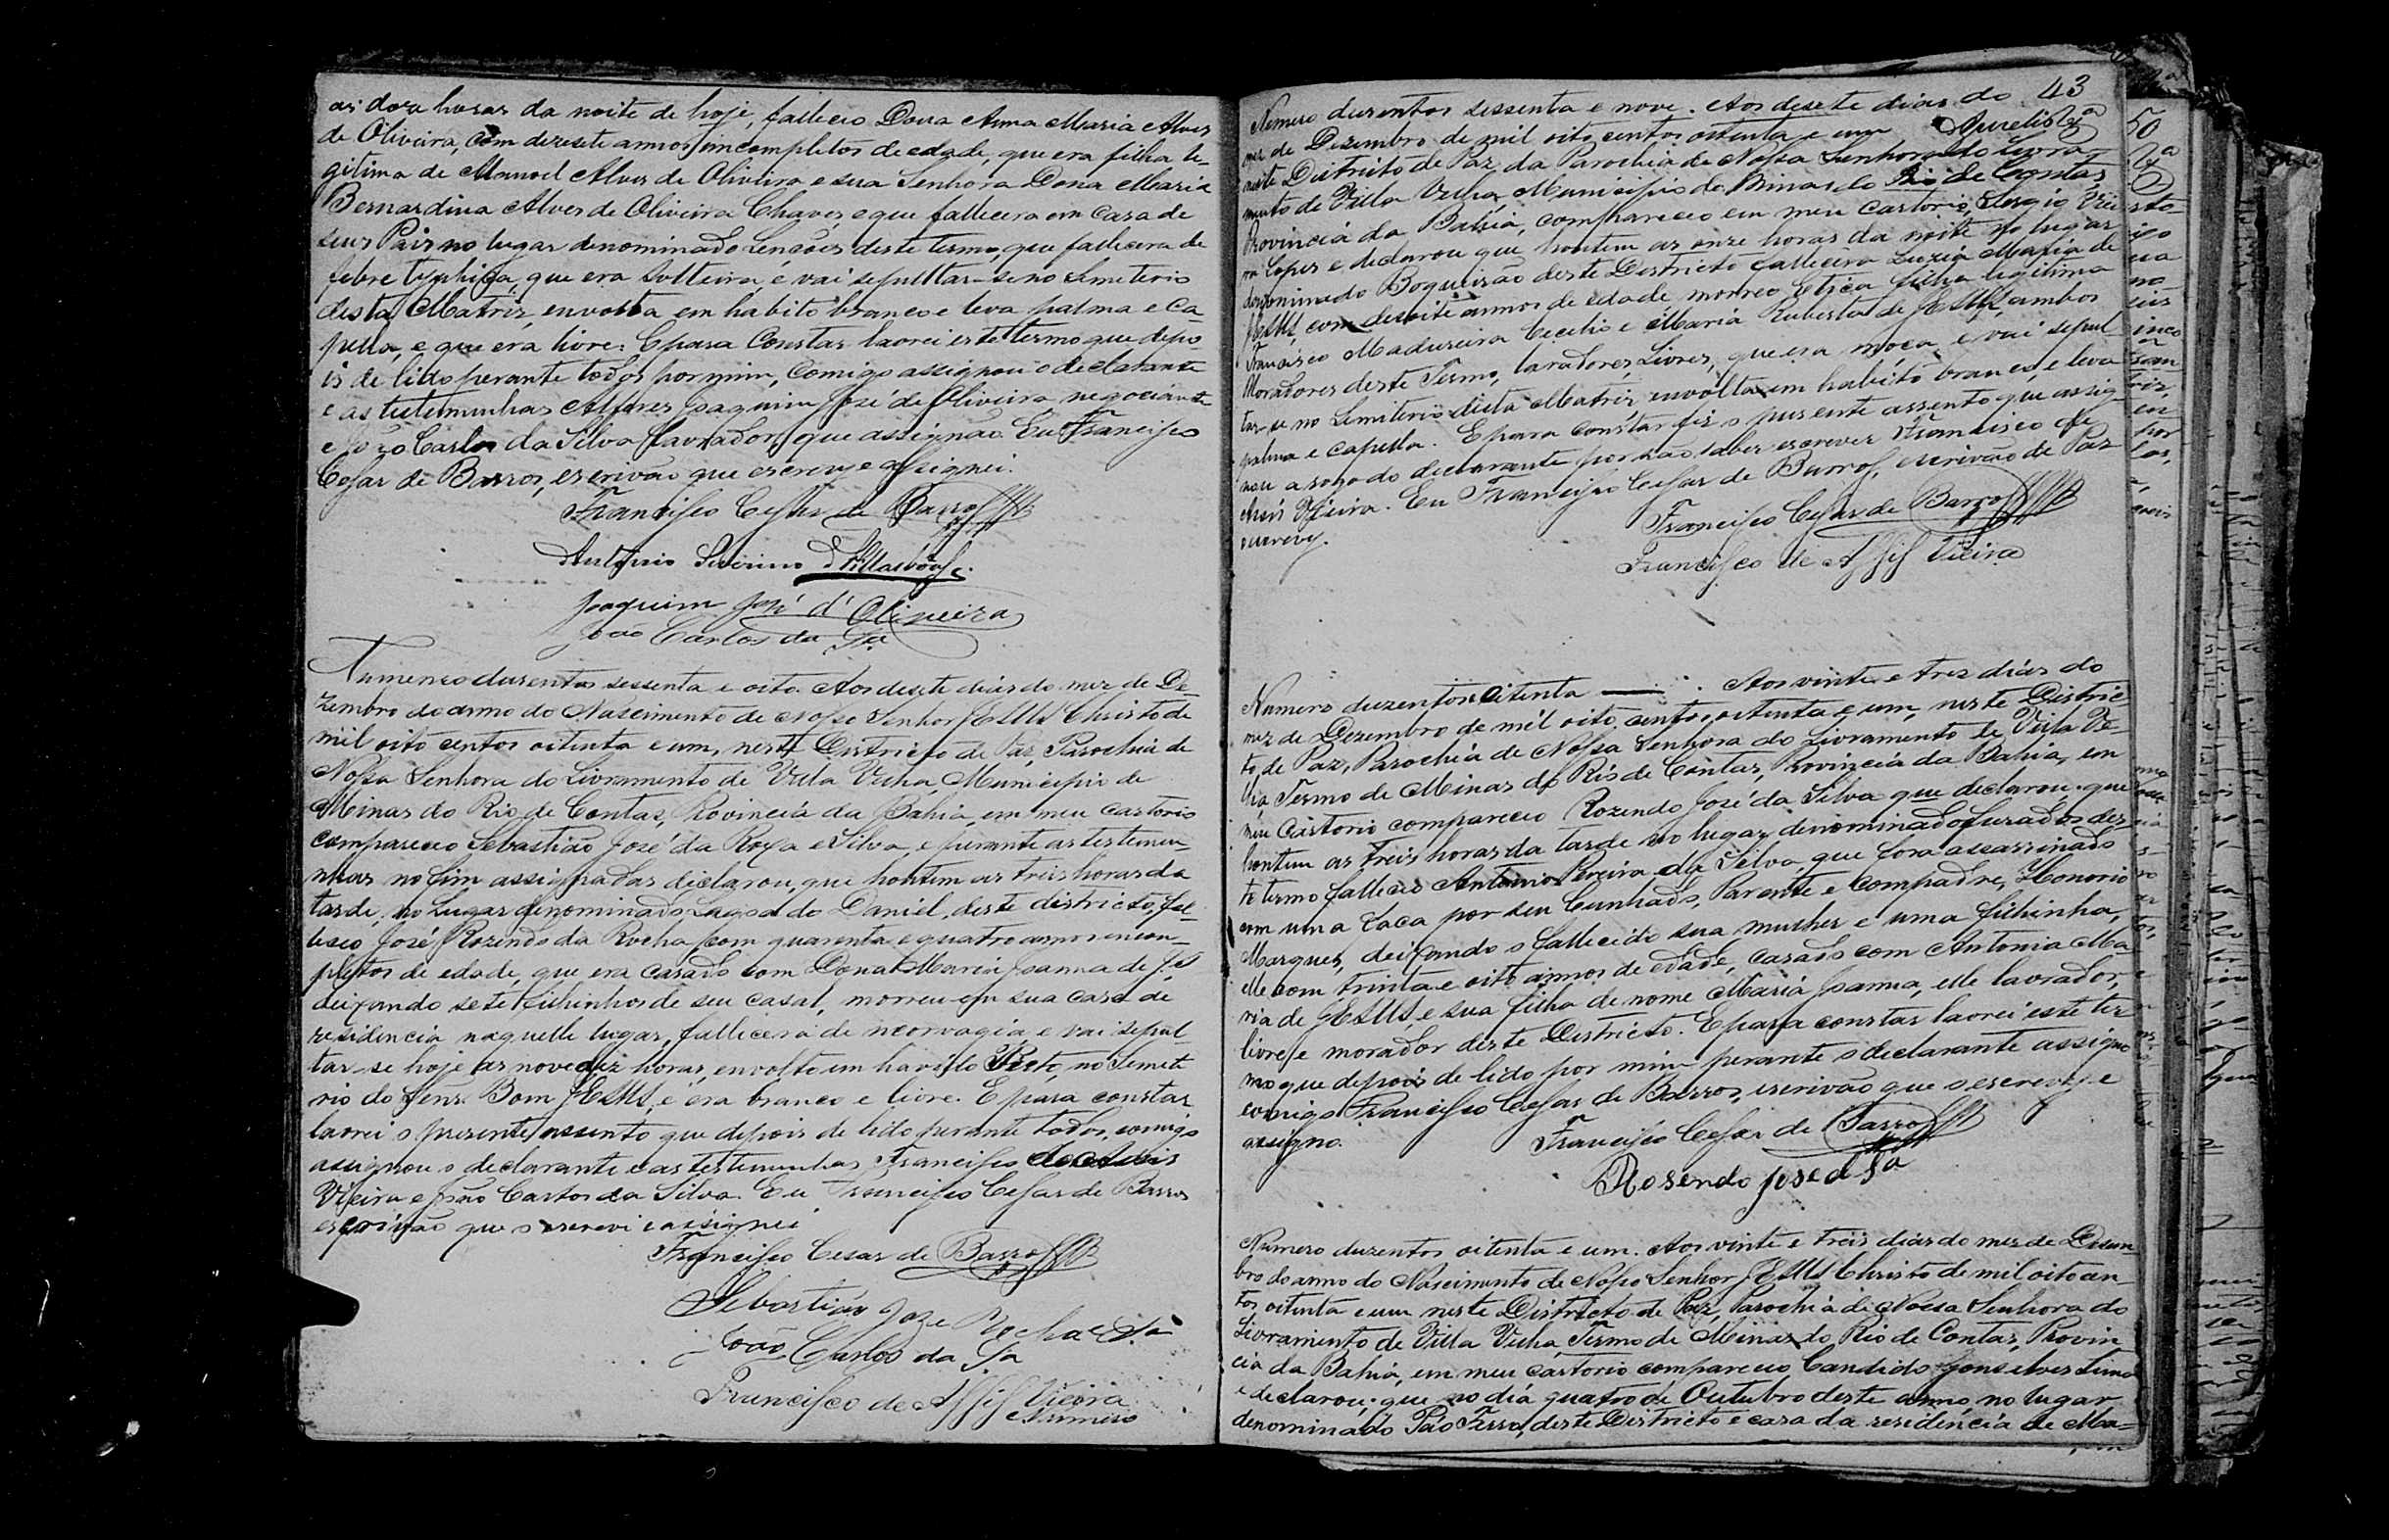 as doze horas da noite de hoje, falleceo Dona Anna Maria Alves
de Oliveira, com dezesete annos incompletos de edade, que era filha le-
gitima de Manoel Alves de Oliveira e sua Senhora Dona Maria
Bernardina Alves de Oliveira Chaves, e que fallecera em casa de
seus Pais no lugar denominado Lençóes deste termo, que fallecera de
febre typhica, que era solteira, e vai sepultar-se no Semeterio
desta Matriz, envolta em habito branco e leva palma e ca-
pella, e que era livre. E para constar lavrei este termo que depo-
is de lido perante todos por mim, comigo assignou o declarante
e as testemunhas Alferes Joaquim José de Oliveira negociante
e João Carlos da Silva lavrador, que assignão. Eu Francisco
Cesar de Barros, escrivão que escrevy e assignei.
Francisco Cesar de Barros
Antonio Severino d'Villasbôas
Joaquim José d'Oliveira
João Carlos da Sa
Numero duzentos sessenta e oito. Aos desete dias do mez de De-
zembro do anno do Nascimento de Nosso Senhor JESUS Christo de
mil oito centos oitenta e um, neste Districto de Paz, Parochia de
Nossa Senhora do Livramento de Villa Velha, Municipio de
Minas do Rio de Contas, Provincia da Bahia, em meu cartorio
compareceo Sebastião José da Roxa e Silva, e perante as testemu-
nhas no fim assignadas declarou, que hontem as treis horas da
tarde, no Lugar denominado Lagoa do Daniel, deste districto, fal-
leceo José Rozendo da Rocha com quarenta e quatro annos incom-
pletos de edade, que era casado com Dona Maria Joanna de Js
deixando sete filhinhos de seu casal, morreu em sua casa de
residencia naquelle lugar, fallicera de neorragia, e vai sepul-
tar-se hoje as nove diz horas, envolto em havito Preto, no Semete
rio do Senr. Bom JESUS, e era branco e livre. E para constar
lavrei o presente assento que depois de lido perante todos, comigo
assignou o declarante e as testemunhas Francisco de Assis
Vieira e João Carlos da Silva. Eu Francisco Cesar de Barros
escrivão que o escrevi e assignei
Francisco Cesar de Barros
Sebastião Joze Rocha e Sa
João Carlos da Sa
Francisco de Assis Vieira
Numero
43
Numero duzentos sessenta e nove. Aos desete dias do
mez de Dezembro de mil oito centos oitenta e um
neste Districto de Paz da Parochia de Nossa Senhora do Livra-
mento de Villa Velha, Municipio de Minas do Rio de Contas,
Provincia da Bahia, compareceo em meu cartorio, Sergio Viei
ra Lopes e declarou que hontem as onze horas da noite no lugar
denominado Boqueirão deste Districto fallecera Luzia Maria de
JESUS, com desoito annos de edade morreo Etica filha legitima
Francisco Madureira Cecilio e Maria Roberta de JESUS, ambos
Moradores deste Termo, lavradores, Livres, que era moça, e vai sepul-
tar se no Semiterio desta Matriz envolta em habito branco, e leva
palma e capella. E para constar fiz o presente assento que assig-
nou a rogo do declarante por não saber escrever Francisco de
Assis Vieira. Eu Francisco Cesar de Barros, escrivão de Paz
escrevy.
Francisco Cesar de Barros
Francisco de Assis Vieira
Numero duzentos oitenta. Aos vinte e trez dias do
mez de Dezembro de mil oito centos oitenta e um, neste Distric
to, de Paz, Parochia de Nossa Senhora do Livramento de Villa Ve-
lha, Termo de Minas do Rio de Contas, Provincia da Bahia, em
meu Cartorio compareceo Rozendo José da Silva que declarou que
hontem as treis horas da tarde no lugar denominado Furados des-
te termo falleceo Antonio Pereira da Silva, que fora assassinado
com uma faca por seu Cunhado, Parente e compadre, Honorio
Marques, deixando o fallecido sua mulher e uma filhinha,
elle com trinta e oito annos de edade, casado com Antonia Ma
ria de JESUS, e sua filha de nome Maria Joanna, elle lavrador,
livre, e morador deste Districto. E para constar lavrei este ter
mo que depois de lido por mim perante o declarante assigno
comigo Francisco Cesar de Barros, escrivão que o escrevy e
assigno.
Francisco Cesar de Barros
Rosendo jose d Sa
Numero duzentos oitenta e um. Aos vinte e treis dias do mez de Dezem
bro do anno do Nascimento de Nosso Senhor JESUS Christo de mil oito cen
tos oitenta e um neste Districto de Paz, Parochia de Nossa Senhora do
Livramento de Villa Velha Termo de Minas do Rio de Contas, Provin
cia da Bahia, em meu cartorio compareceo Candido Gonsalves Lima
e declarou; que no dia quatro de Outubro deste anno no lugar
denominado Páo Ferro, deste Districto e casa da residencia de Ma-